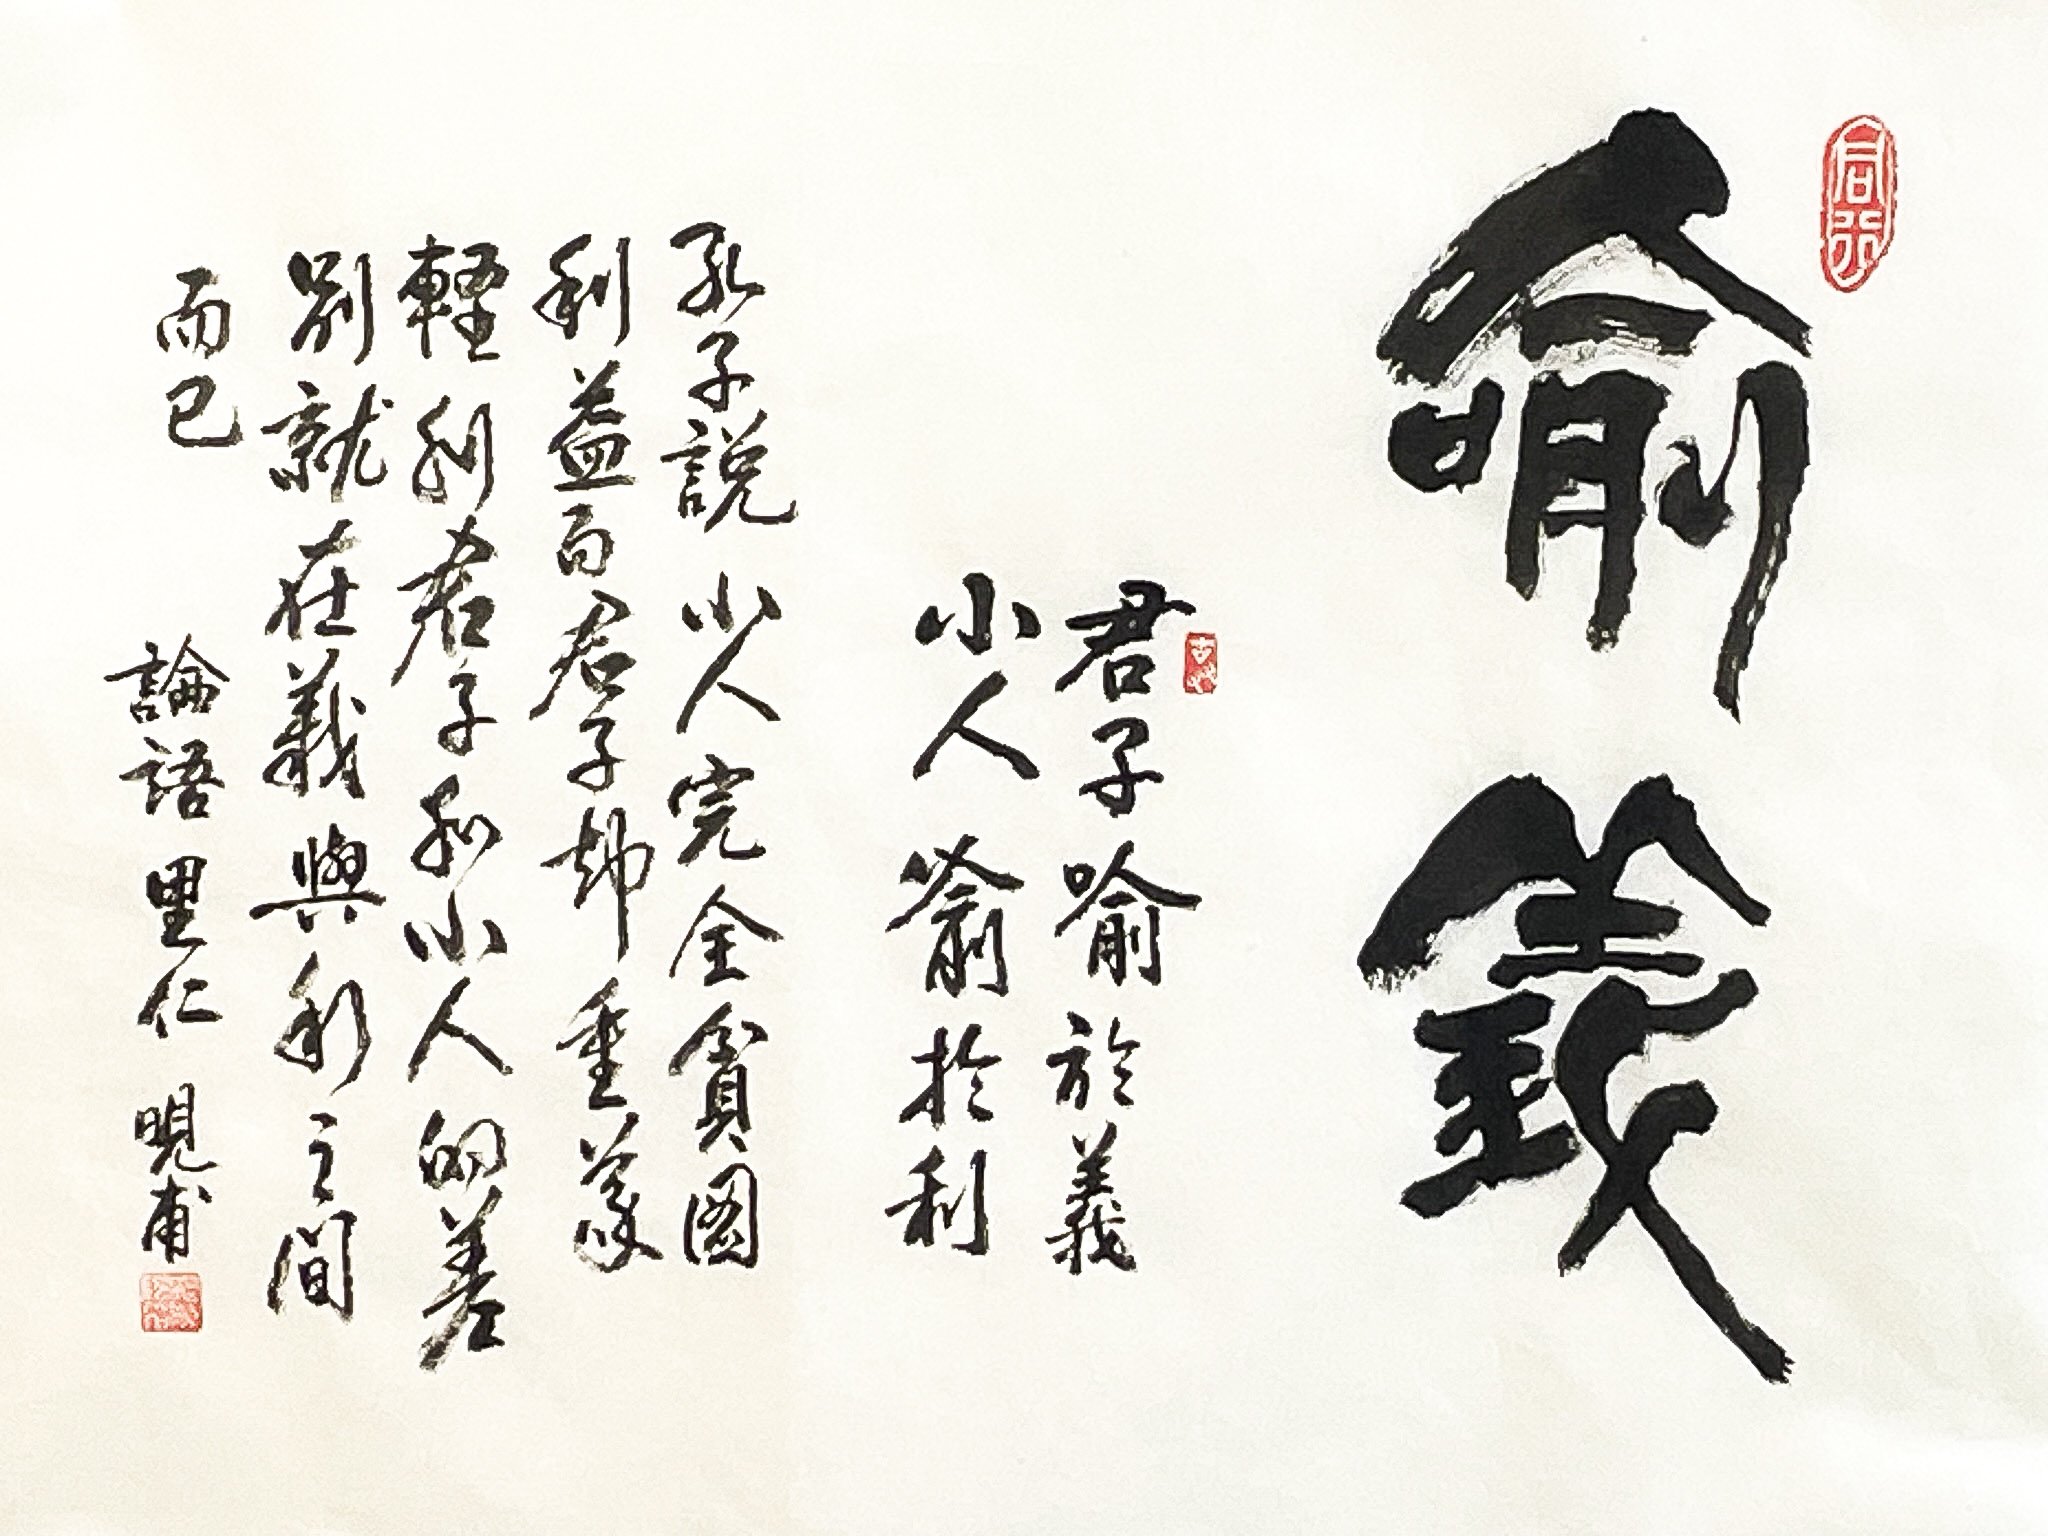 喻義
君子喻於義
小人喻於利
孔子說小人完全貪圖
利益而君子却重義
輕利君子和小人的差
別就在義與利之間
而已
論語里仁 晛甫